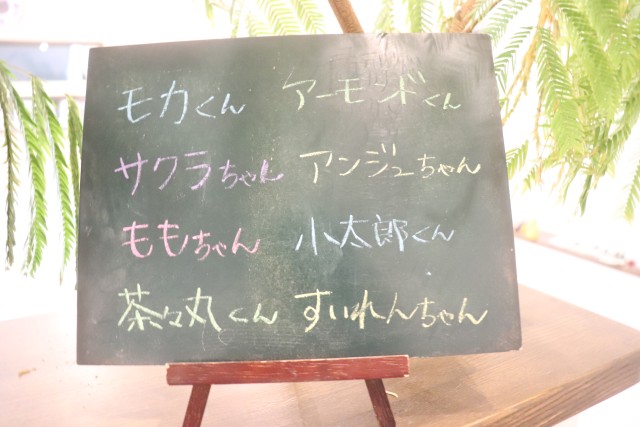 モカくん アーモンドくん
サクラちゃん アンジュちゃん
ももちゃん 小太郎くん
茶々丸くん すいれんちゃん